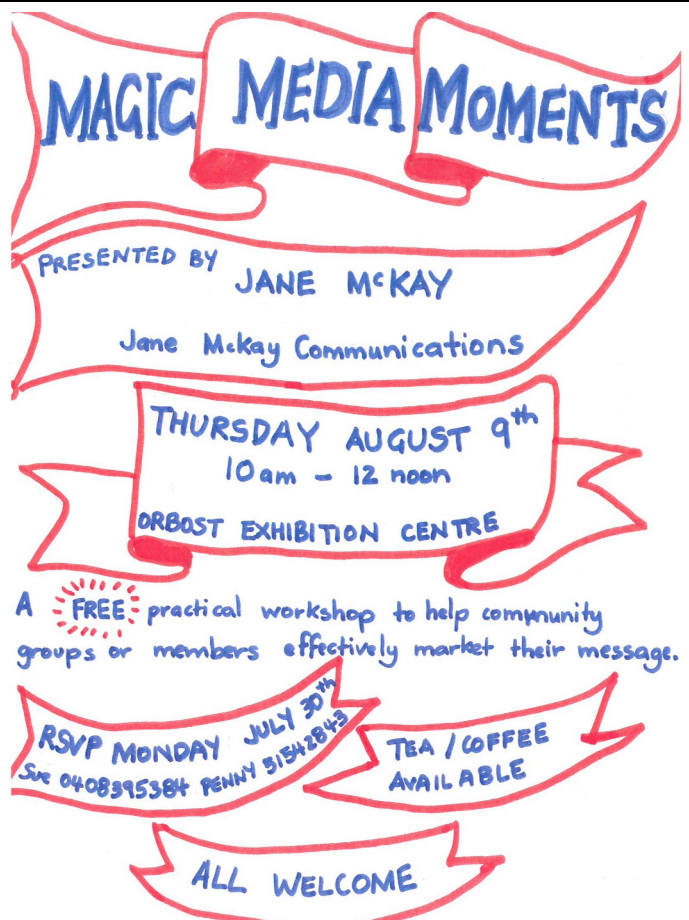 MAGIC MEDIA MOMENTS
PRESENTED BY JANE McKAY
Jane McKay Communications
THURSDAY AUGUST 9th
10am - 12 noon
ORBOST EXHIBITION CENTRE
A FREE practical workshop to help community
groups or members effectively market their message.
RSVP MONDAY JULY 30th
Sue 0408395384 PENNY 51542843
TEA / COFFEE
AVAILABLE
ALL WELCOME